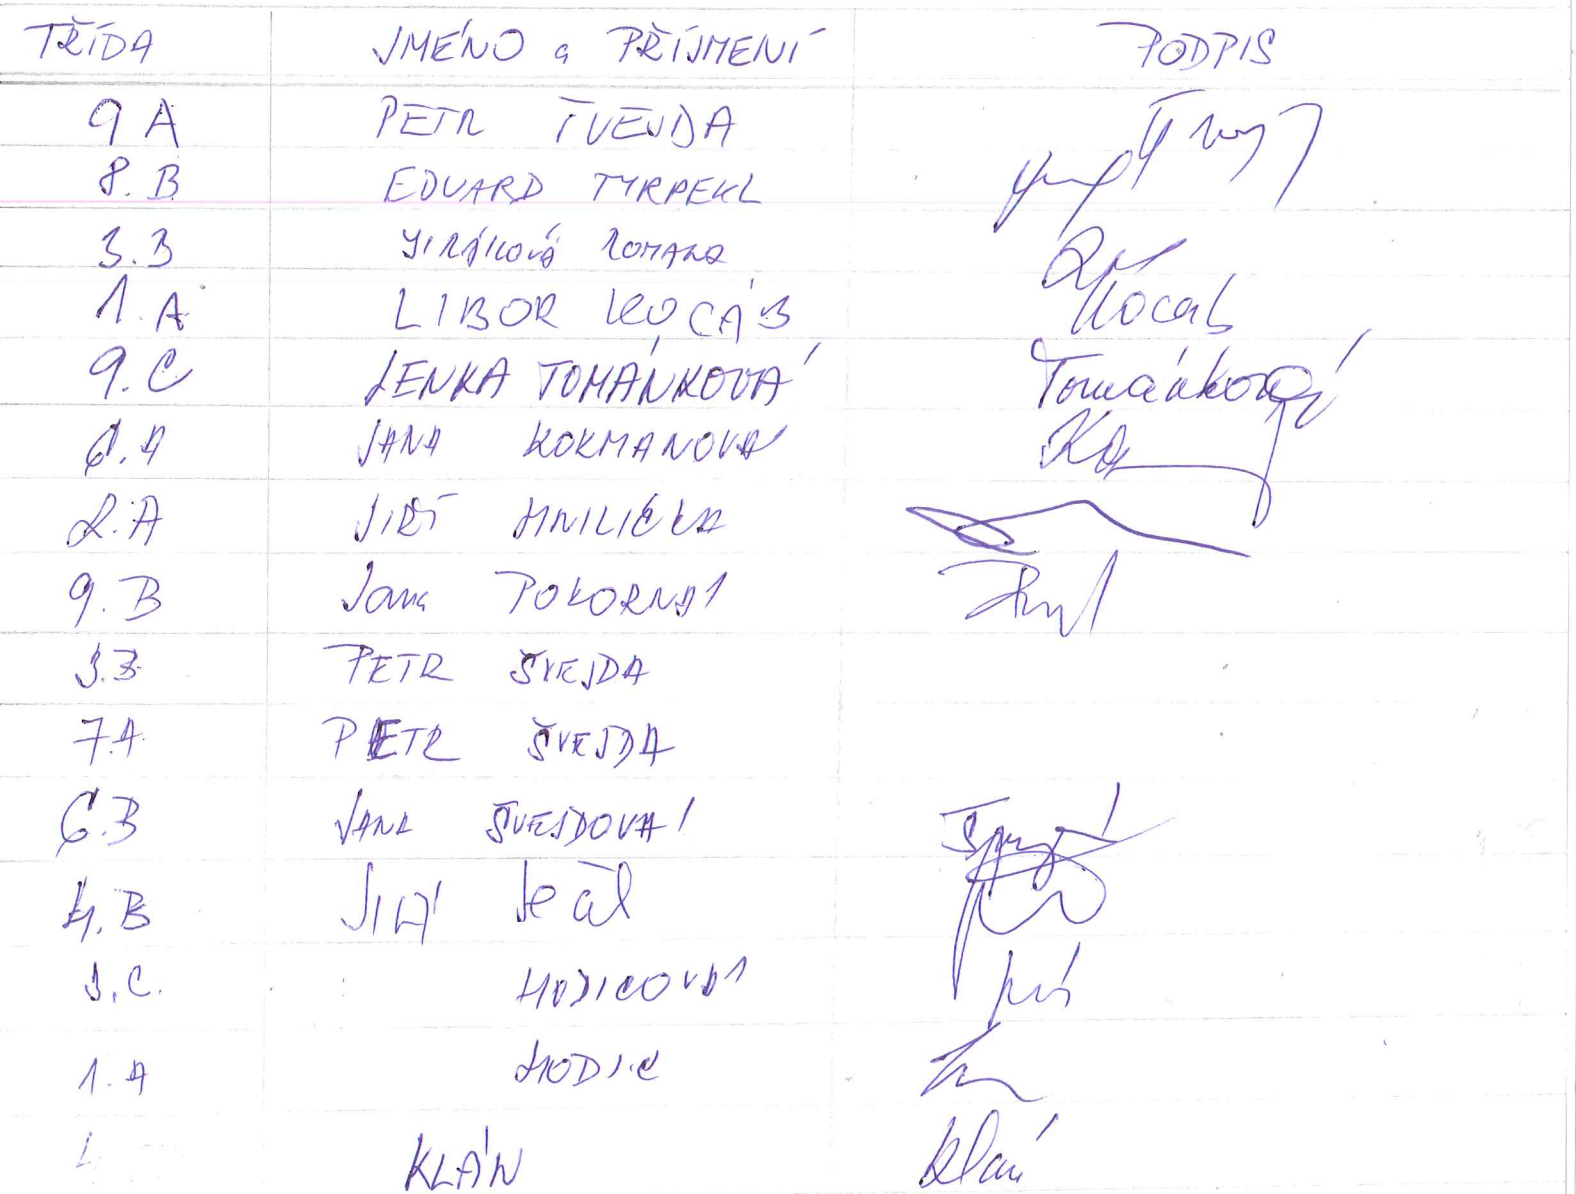 TŘÍDA JMÉNO a PŘÍJMENÍ PODPIS
9 A PETR ŠVEJDA
8. B EDUARD TYRPEKL
3. B JIRÁKOVÁ ROMANA
1. A LIBOR KOCÁB Kocáb
9. C LENKA TOMÁNKOVÁ Tománková
6. A JANA KOKMANOVÁ
2. A JIŘÍ HNILIČKA
9. B Jana POKORNÁ
3. B PETR ŠVEJDA
7. A PETR ŠVEJDA
6. B JANA ŠVEJDOVÁ
4. B JIŘÍ
3. C. HODICOVÁ
1. A HODIC
KLÁN Klán